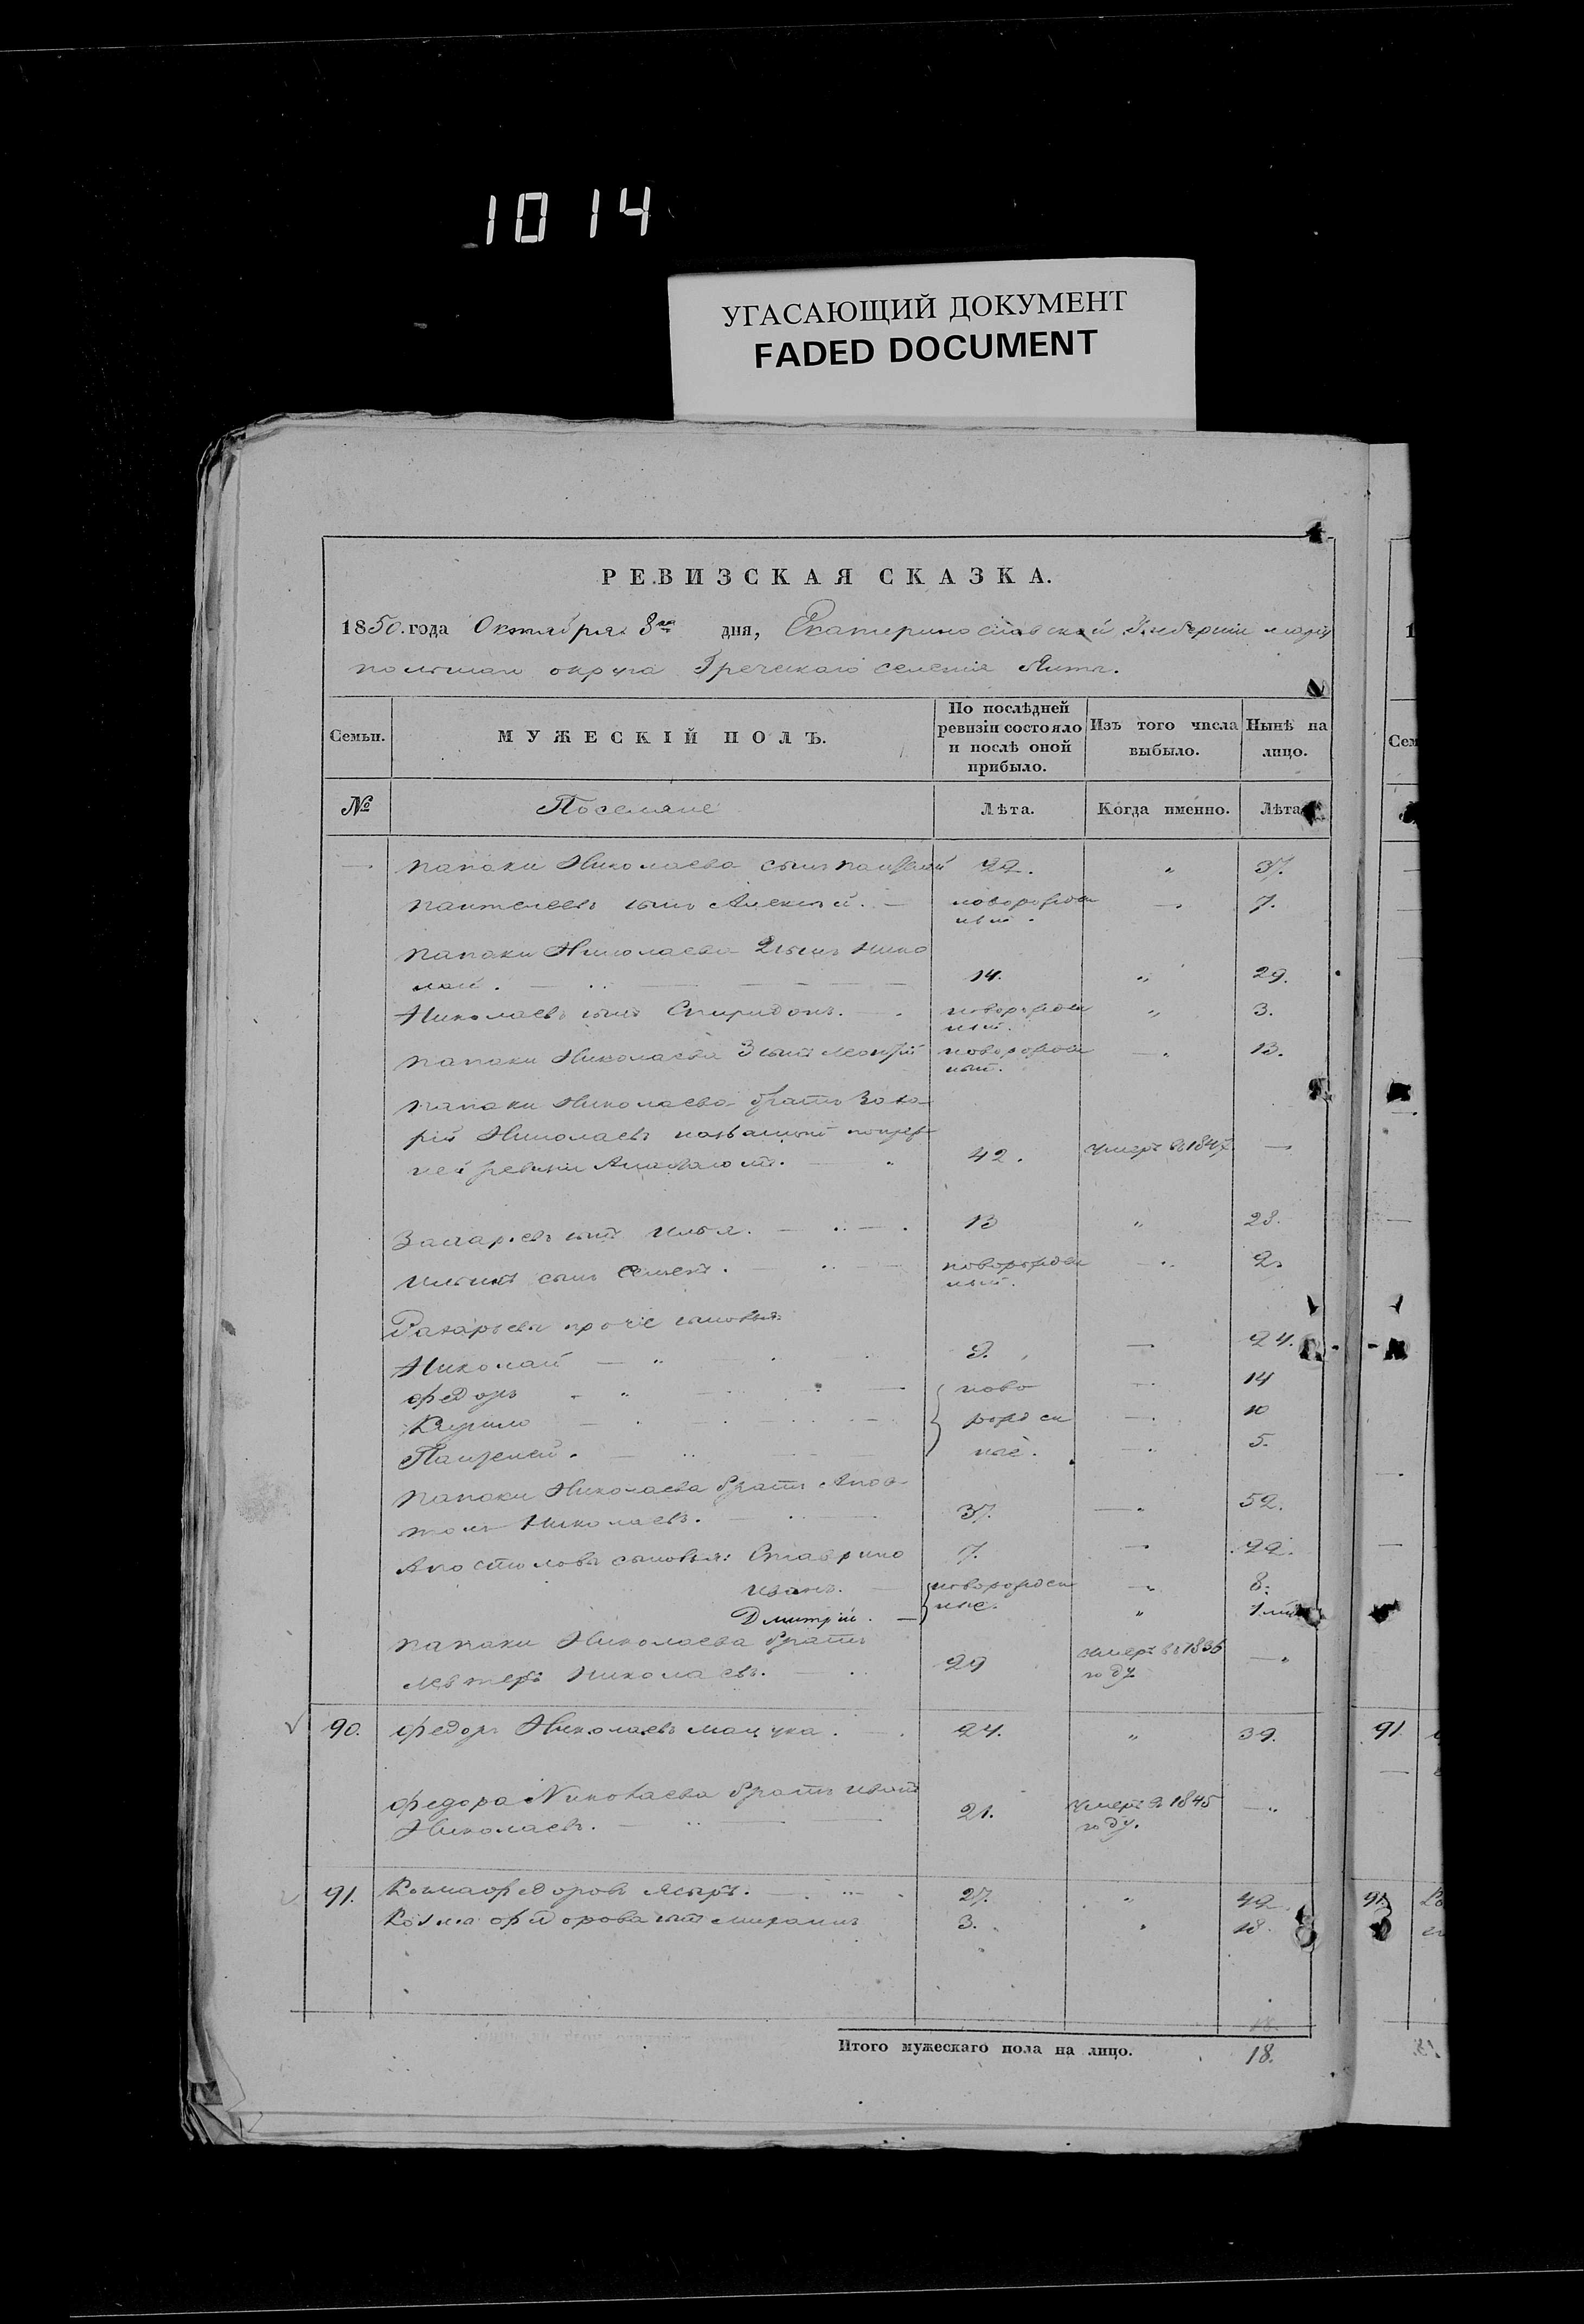 1014
УГАСАЮЩИЙ ДОКУМЕНТ
FADED DOCUMENT
РЕВИЗСКАЯ СКАЗКА.
1850 года Октября 8го дня, Екатеринославской Губерніи маріу
польскаго округа Греческаго селенія Ялты.
Семьи.
МУЖЕСКІЙ ПОЛЪ.
По послѣдней
ревизіи состояло
и послѣ оной
прибыло.
Изъ того числа
выбыло.
Нынѣ на
лицо.
№
Поселяне
Лѣта.
Когда именно.
Лѣта
папаки Николаева сынъ 22. " 37.
пантелеевъ сынъ Алексѣй. новорожден — 7.
ный.
папаки Николаева 2 сынъ нико
лай. 14. " 29.
Николаевъ сынъ Спиридонъ. новорожден " 3.
ный.
папаки Николаева 3 сынъ новорожден — 13.
ный.
папаки Николаева братъ Заха
рій Николаевъ названный
ней ревизіи 42. умеръ въ 1847 —
Захарьевъ сынъ илья. 13 " 28.
ильинъ сынъ Семенъ. новорожден — 2.
ный.
Захарьевы прочіе сыновья
Николай — " 9. — 24.
федоръ — " ново — 14
Кирило — рожден — 10
Пантелей. ные. — 5.
папаки Николаева братъ Апос
толъ Николаевъ. 37. — 52.
Апостоловы сыновья: Ставрино 7. — 22.
иванъ. новорожден — 8.
Дмитрій. ные. " 1
папаки Николаева братъ
левтеръ Николаевъ. 29 умеръ въ 1836 —
году
90. федоръ Николаевъ мацука. 24. " 39.
федора Николаева братъ иванъ
Николаевъ. 21. умеръ въ 1845 —
году.
91. Козма федоровъ 27. " 42
Козмы федорова сынъ михаилъ 3. " 18.
18.
Итого мужескаго пола на лицо. 18.
Сем
91.
91